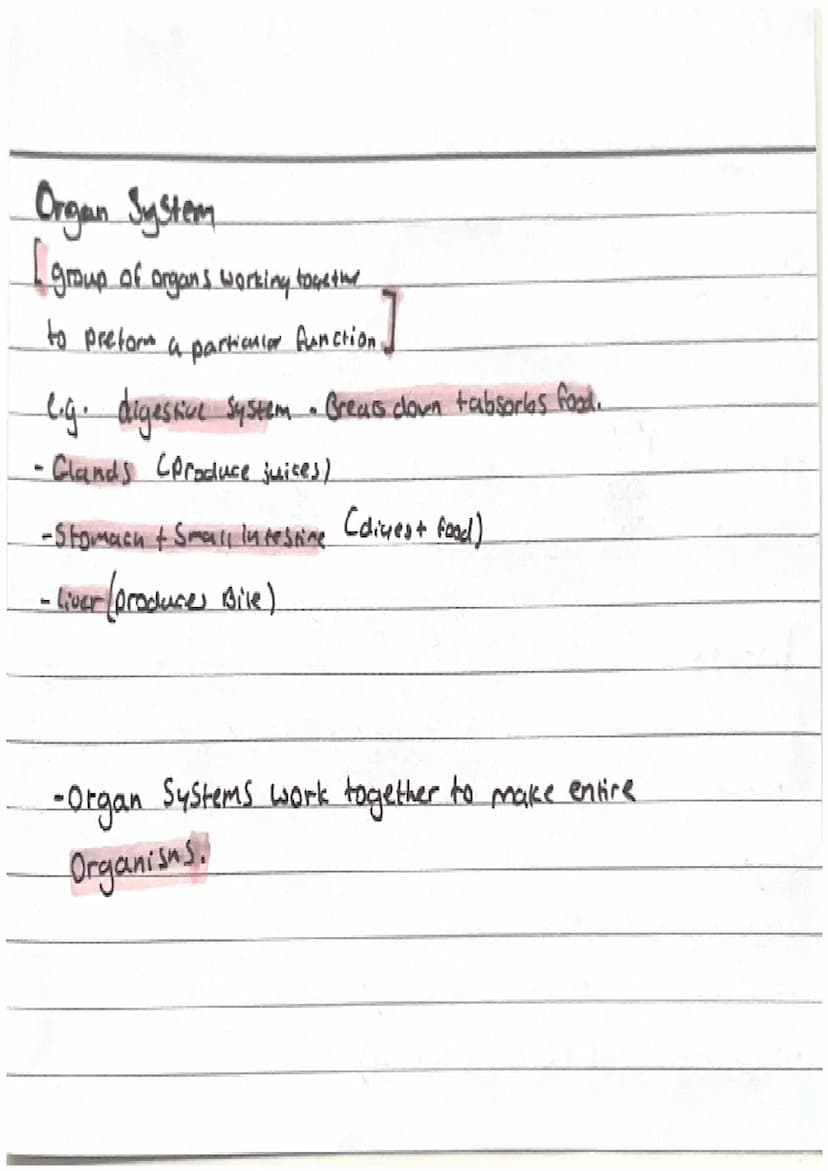 Organ System
[group of organs working together
to preform a particular function]
e.g. digestive system - Breaks down + absorbs food.
- Glands (produce juices)
- Stomach + Small intestine (digest food)
- liver (produces Bile)
- Organ Systems work together to make entire
Organisms.